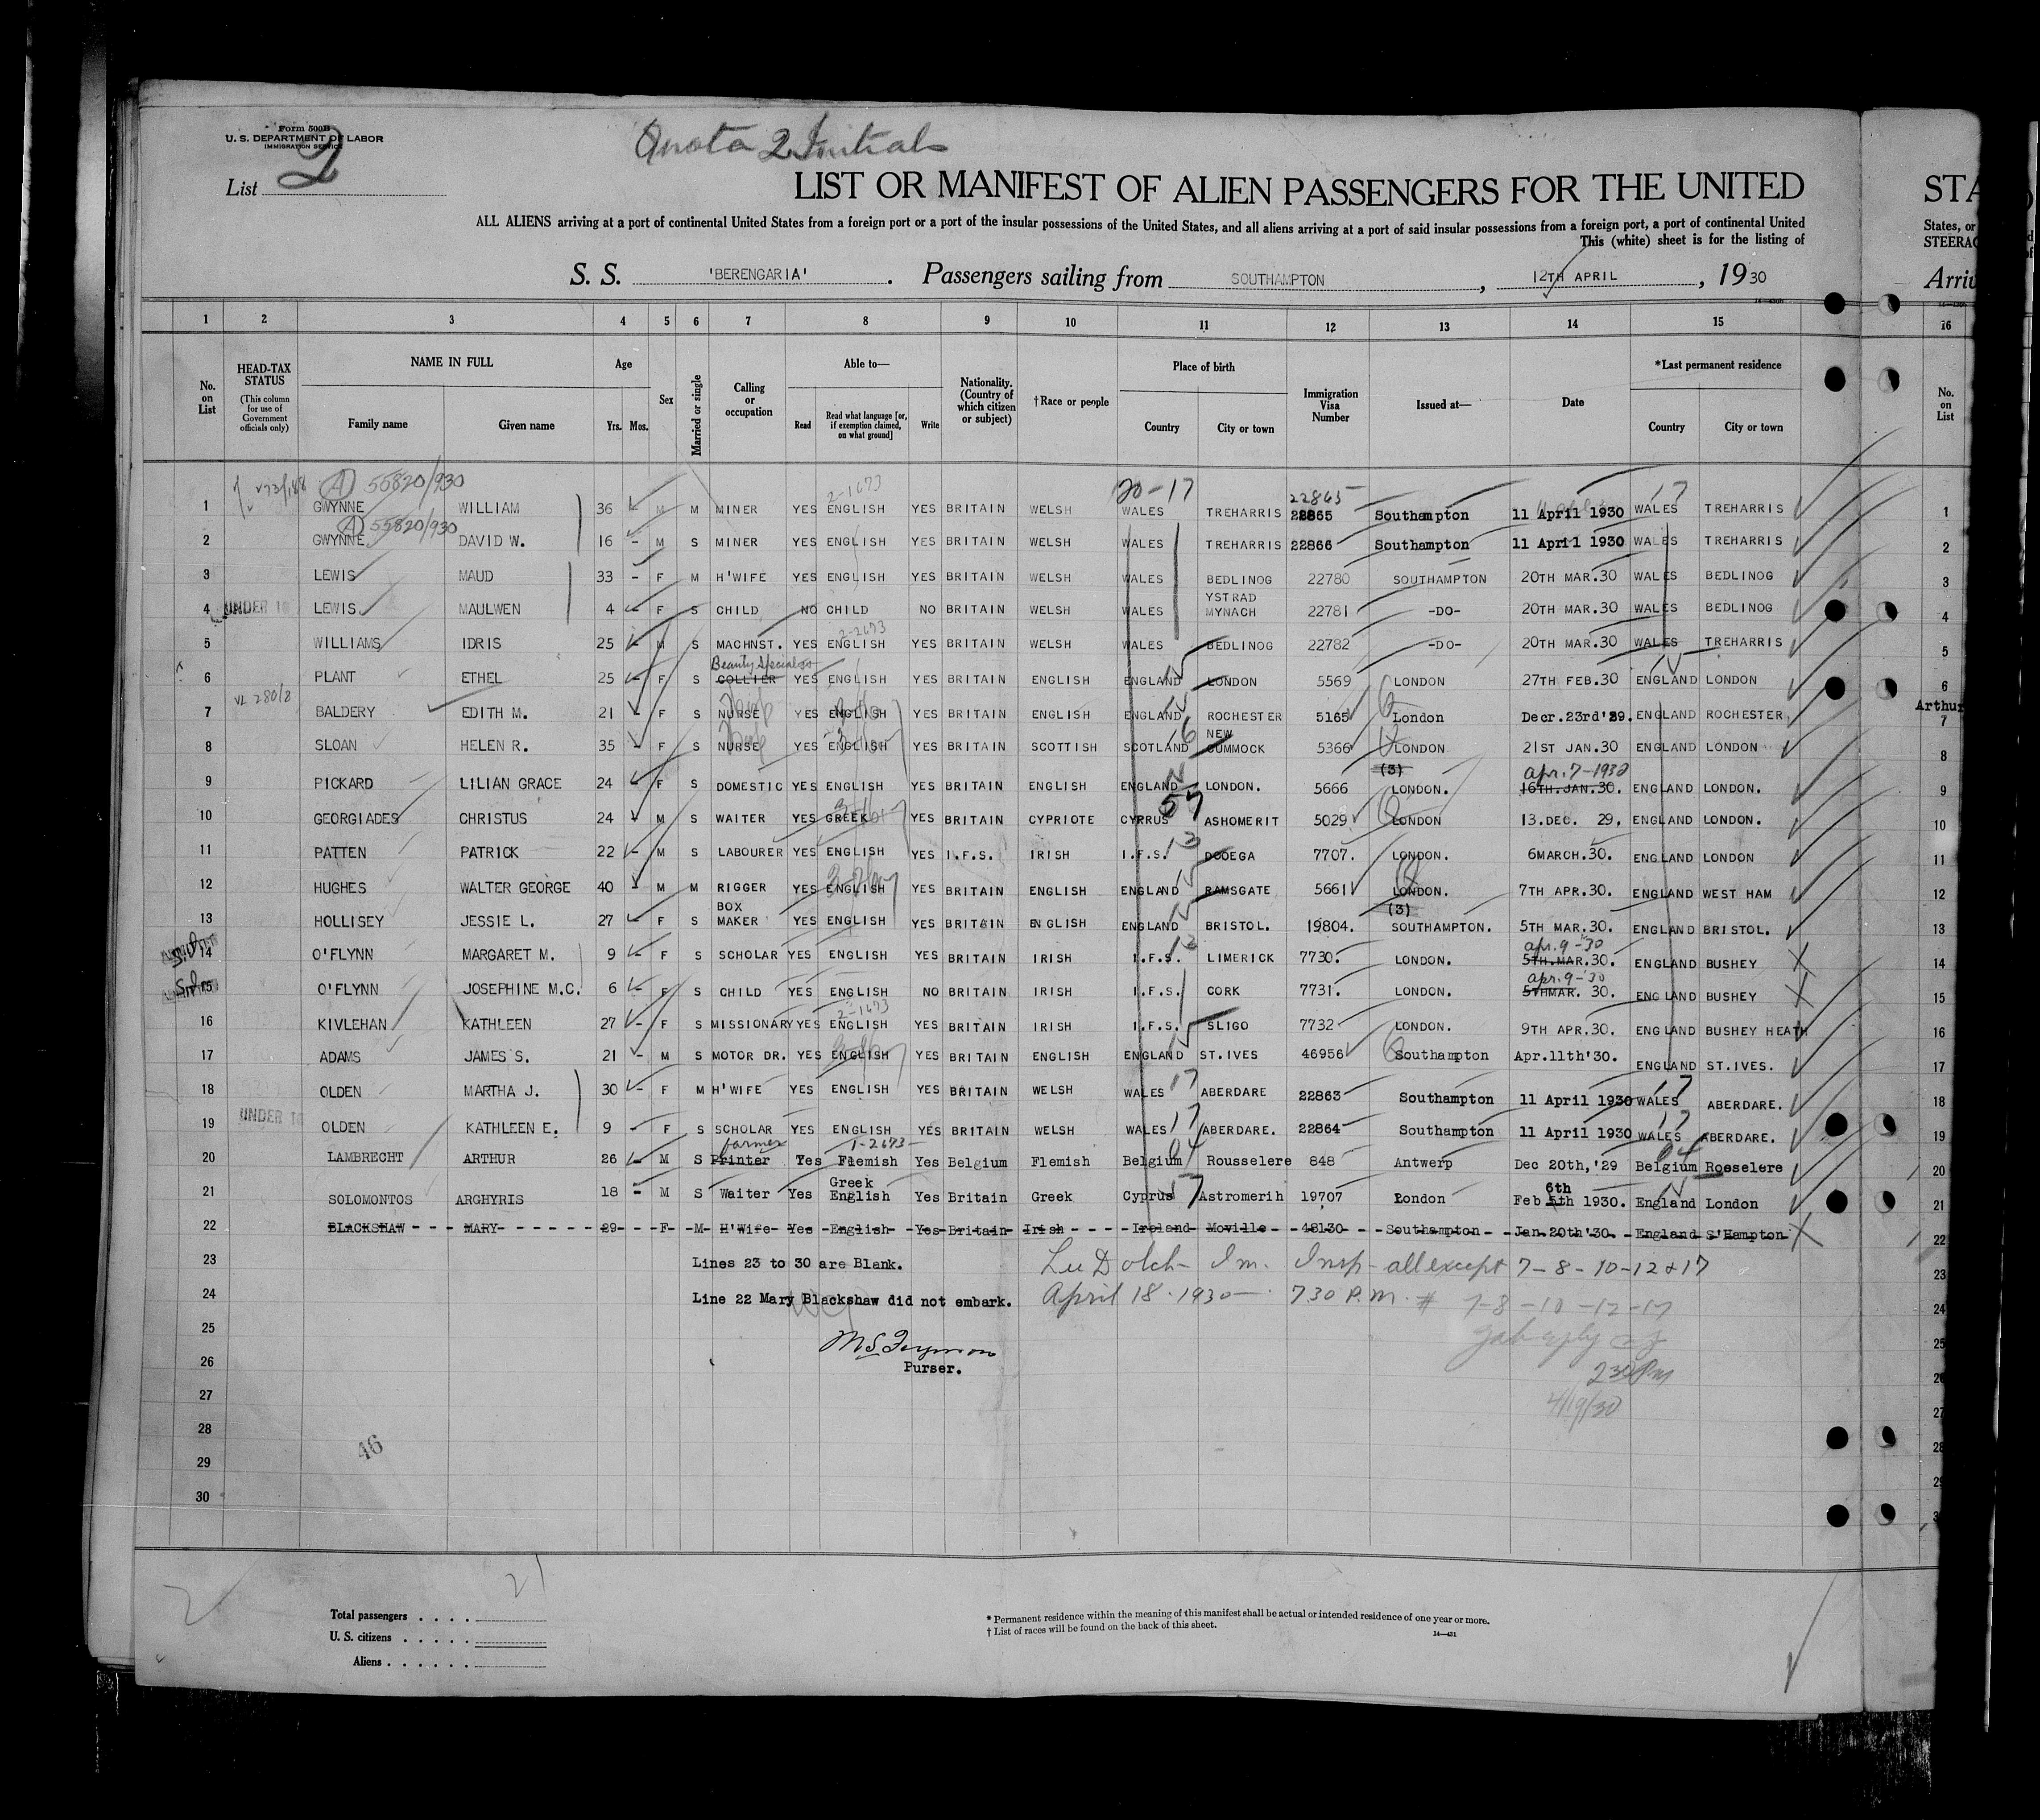 Form 500B
U. S. DEPARTMENT OF LABOR
IMMIGRATION SERVICE
List 2
Quota 2 Initials
LIST OR MANIFEST OF ALIEN PASSENGERS FOR THE UNITED
STA
ALL ALIENS arriving at a port of continental United States from a foreign port or a port of the insular possessions of the United States, and all aliens arriving at a port of said insular possessions from a foreign port, a port of continental United
States, or
This (white) sheet is for the listing of
STEERAG
S. S. 'BERENGARIA'. Passengers sailing from SOUTHAMPTON, 12TH APRIL, 1930
Arriv
1 2 3 4 5 6 7 8 9 10 11 12 13 14 15 16
No. on List
HEAD-TAX STATUS
(This column for use of Government officials only)
NAME IN FULL
Family name Given name
Age
Yrs. Mos.
Sex
Married or single
Calling or occupation
Able to—
Read Read what language [or, if exemption claimed, on what ground] Write
Nationality. (Country of which citizen or subject)
†Race or people
Place of birth
Country City or town
Immigration Visa Number
Issued at—
Date
*Last permanent residence
Country City or town
No. on List
(A) 55820/930 2-1673 20-17 22865 17
1 GWYNNE WILLIAM 36 M M MINER YES ENGLISH YES BRITAIN WELSH WALES TREHARRIS 22865 Southampton 11 April 1930 WALES TREHARRIS 1
(A) 55820/930
2 GWYNNE DAVID W. 16 - M S MINER YES ENGLISH YES BRITAIN WELSH WALES TREHARRIS 22866 Southampton 11 April 1930 WALES TREHARRIS 2
3 LEWIS MAUD 33 - F M H'WIFE YES ENGLISH YES BRITAIN WELSH WALES BEDLINOG 22780 SOUTHAMPTON 20TH MAR.30 WALES BEDLINOG 3
4 UNDER 16 LEWIS MAULWEN 4 - F S CHILD NO CHILD NO BRITAIN WELSH WALES YSTRAD MYNACH 22781 -DO- 20TH MAR.30 WALES BEDLINOG 4
2-1673
5 WILLIAMS IDRIS 25 - M S MACHNST. YES ENGLISH YES BRITAIN WELSH WALES BEDLINOG 22782 -DO- 20TH MAR.30 WALES TREHARRIS 5
Beauty Specialist
6 PLANT ETHEL 25 - F S COLLIER YES ENGLISH YES BRITAIN ENGLISH ENGLAND LONDON 5569 LONDON 27TH FEB.30 ENGLAND LONDON 6
Arthur
7 BALDERY EDITH M. 21 - F S NURSE YES ENGLISH YES BRITAIN ENGLISH ENGLAND ROCHESTER 5165 London Decr.23rd'29. ENGLAND ROCHESTER 7
8 SLOAN HELEN R. 35 - F S NURSE YES ENGLISH YES BRITAIN SCOTTISH SCOTLAND NEW CUMMOCK 5366 LONDON 21ST JAN.30 ENGLAND LONDON 8
(3) Apr. 7-1930
9 PICKARD LILIAN GRACE 24 F S DOMESTIC YES ENGLISH YES BRITAIN ENGLISH ENGLAND LONDON. 5666 LONDON. 16TH.JAN.30. ENGLAND LONDON. 9
10 GEORGIADES CHRISTUS 24 M S WAITER YES GREEK YES BRITAIN CYPRIOTE CYPRUS ASHOMERIT 5029 LONDON 13.DEC. 29. ENGLAND LONDON. 10
11 PATTEN PATRICK 22 - M S LABOURER YES ENGLISH YES I.F.S. IRISH I.F.S. DOOEGA 7707. LONDON. 6MARCH.30. ENGLAND LONDON 11
12 HUGHES WALTER GEORGE 40 M M RIGGER YES ENGLISH YES BRITAIN ENGLISH ENGLAND RAMSGATE 5661 LONDON. 7TH APR.30. ENGLAND WEST HAM 12
(3)
13 HOLLISEY JESSIE L. 27 F S BOX MAKER YES ENGLISH YES BRITAIN ENGLISH ENGLAND BRISTOL. 19804. SOUTHAMPTON. 5TH MAR.30. ENGLAND BRISTOL. 13
apr. 9-'30
14 O'FLYNN MARGARET M. 9 F S SCHOLAR YES ENGLISH YES BRITAIN IRISH I.F.S. LIMERICK 7730. LONDON. 5TH.MAR.30. ENGLAND BUSHEY 14
apr. 9-'30
15 O'FLYNN JOSEPHINE M.C. 6 F S CHILD YES ENGLISH NO BRITAIN IRISH I.F.S. CORK 7731. LONDON. 5THMAR. 30. ENGLAND BUSHEY 15
2-1673
16 KIVLEHAN KATHLEEN 27 - F S MISSIONARY YES ENGLISH YES BRITAIN IRISH I.F.S. SLIGO 7732 LONDON. 9TH APR.30. ENGLAND BUSHEY HEATH 16
17 ADAMS JAMES S. 21 - M S MOTOR DR. YES ENGLISH YES BRITAIN ENGLISH ENGLAND ST.IVES 46956 Southampton Apr.11th'30. ENGLAND ST.IVES. 17
18 OLDEN MARTHA J. 30 - F M H'WIFE YES ENGLISH YES BRITAIN WELSH WALES 17 ABERDARE 22863 Southampton 11 April 1930 WALES 17 ABERDARE. 18
UNDER 16
19 OLDEN KATHLEEN E. 9 - F S SCHOLAR YES ENGLISH YES BRITAIN WELSH WALES 17 ABERDARE. 22864 Southampton 11 April 1930 WALES 17 ABERDARE. 19
farmer 1-2673
20 LAMBRECHT ARTHUR 26 - M S Printer Yes Flemish Yes Belgium Flemish Belgium 04 Rousselere 848 Antwerp Dec 20th,'29 Belgium 04 Roeselere 20
21 SOLOMONTOS ARGHYRIS 18 - M S Waiter Yes Greek English Yes Britain Greek Cyprus Astromerih 19707 London Feb 6th 5th 1930. England London 21
22 BLACKSHAW MARY 29 F M H'Wife Yes English Yes Britain Irish Ireland Moville 48130 Southampton Jan.20th'30. England S'Hampton 22
23 Lines 23 to 30 are Blank. Im. Insp- all except 7-8-10-12+17 23
24 Line 22 Mary Blackshaw did not embark. April 18.1930 — 730 P.M. # 7-8-10-12-17 24
25
26 Purser. 230 PM
27 4/19/30
28 46
29
30
21
Total passengers . . . .
U. S. citizens . . . . .
Aliens . . . . . .
* Permanent residence within the meaning of this manifest shall be actual or intended residence of one year or more.
† List of races will be found on the back of this sheet.
14—431